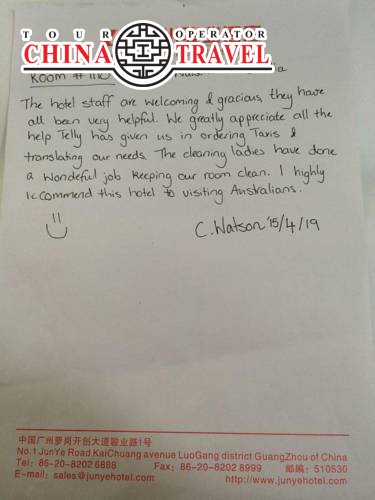 TOUR OPERATOR
CHINA TRAVEL
Room #
The hotel staff are welcoming & gracious, they have
all been very helpful. We greatly appreciate all the
help Telly has given us in ordering Taxis &
translating our needs. The cleaning ladies have done
a wonderful job keeping our room clean. I highly
recommend this hotel to visiting Australians.
C. Watson 15/4/19
中国广州萝岗开创大道骏业路1号
No.1 JunYe Road KaiChuang avenue LuoGang district GuangZhou of China
Tel: 86-20-8202 6888 Fax: 86-20-8202 8999 邮编: 510530
E-mail: sales@junyehotel.com http://www.junyehotel.com